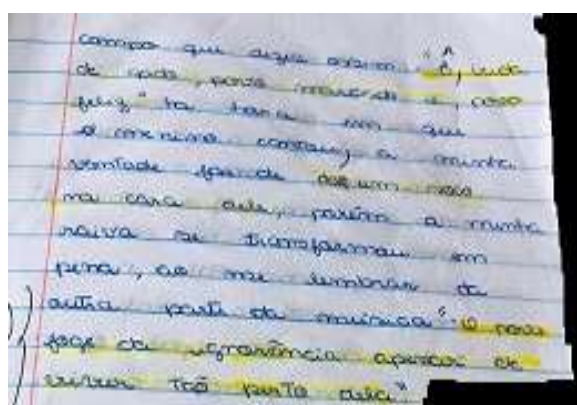 campo que dizia assim: "Ê, vida
de gado, povo marcado e, povo
feliz" na hora em que
o menino contou, a minha
vontade foi de dar um soco
na cara dele, porém a minha
raiva se transformou em
pena, ao me lembrar da
outra parte da música "O povo
foge da ignorância apesar de
viver tão perto dela"